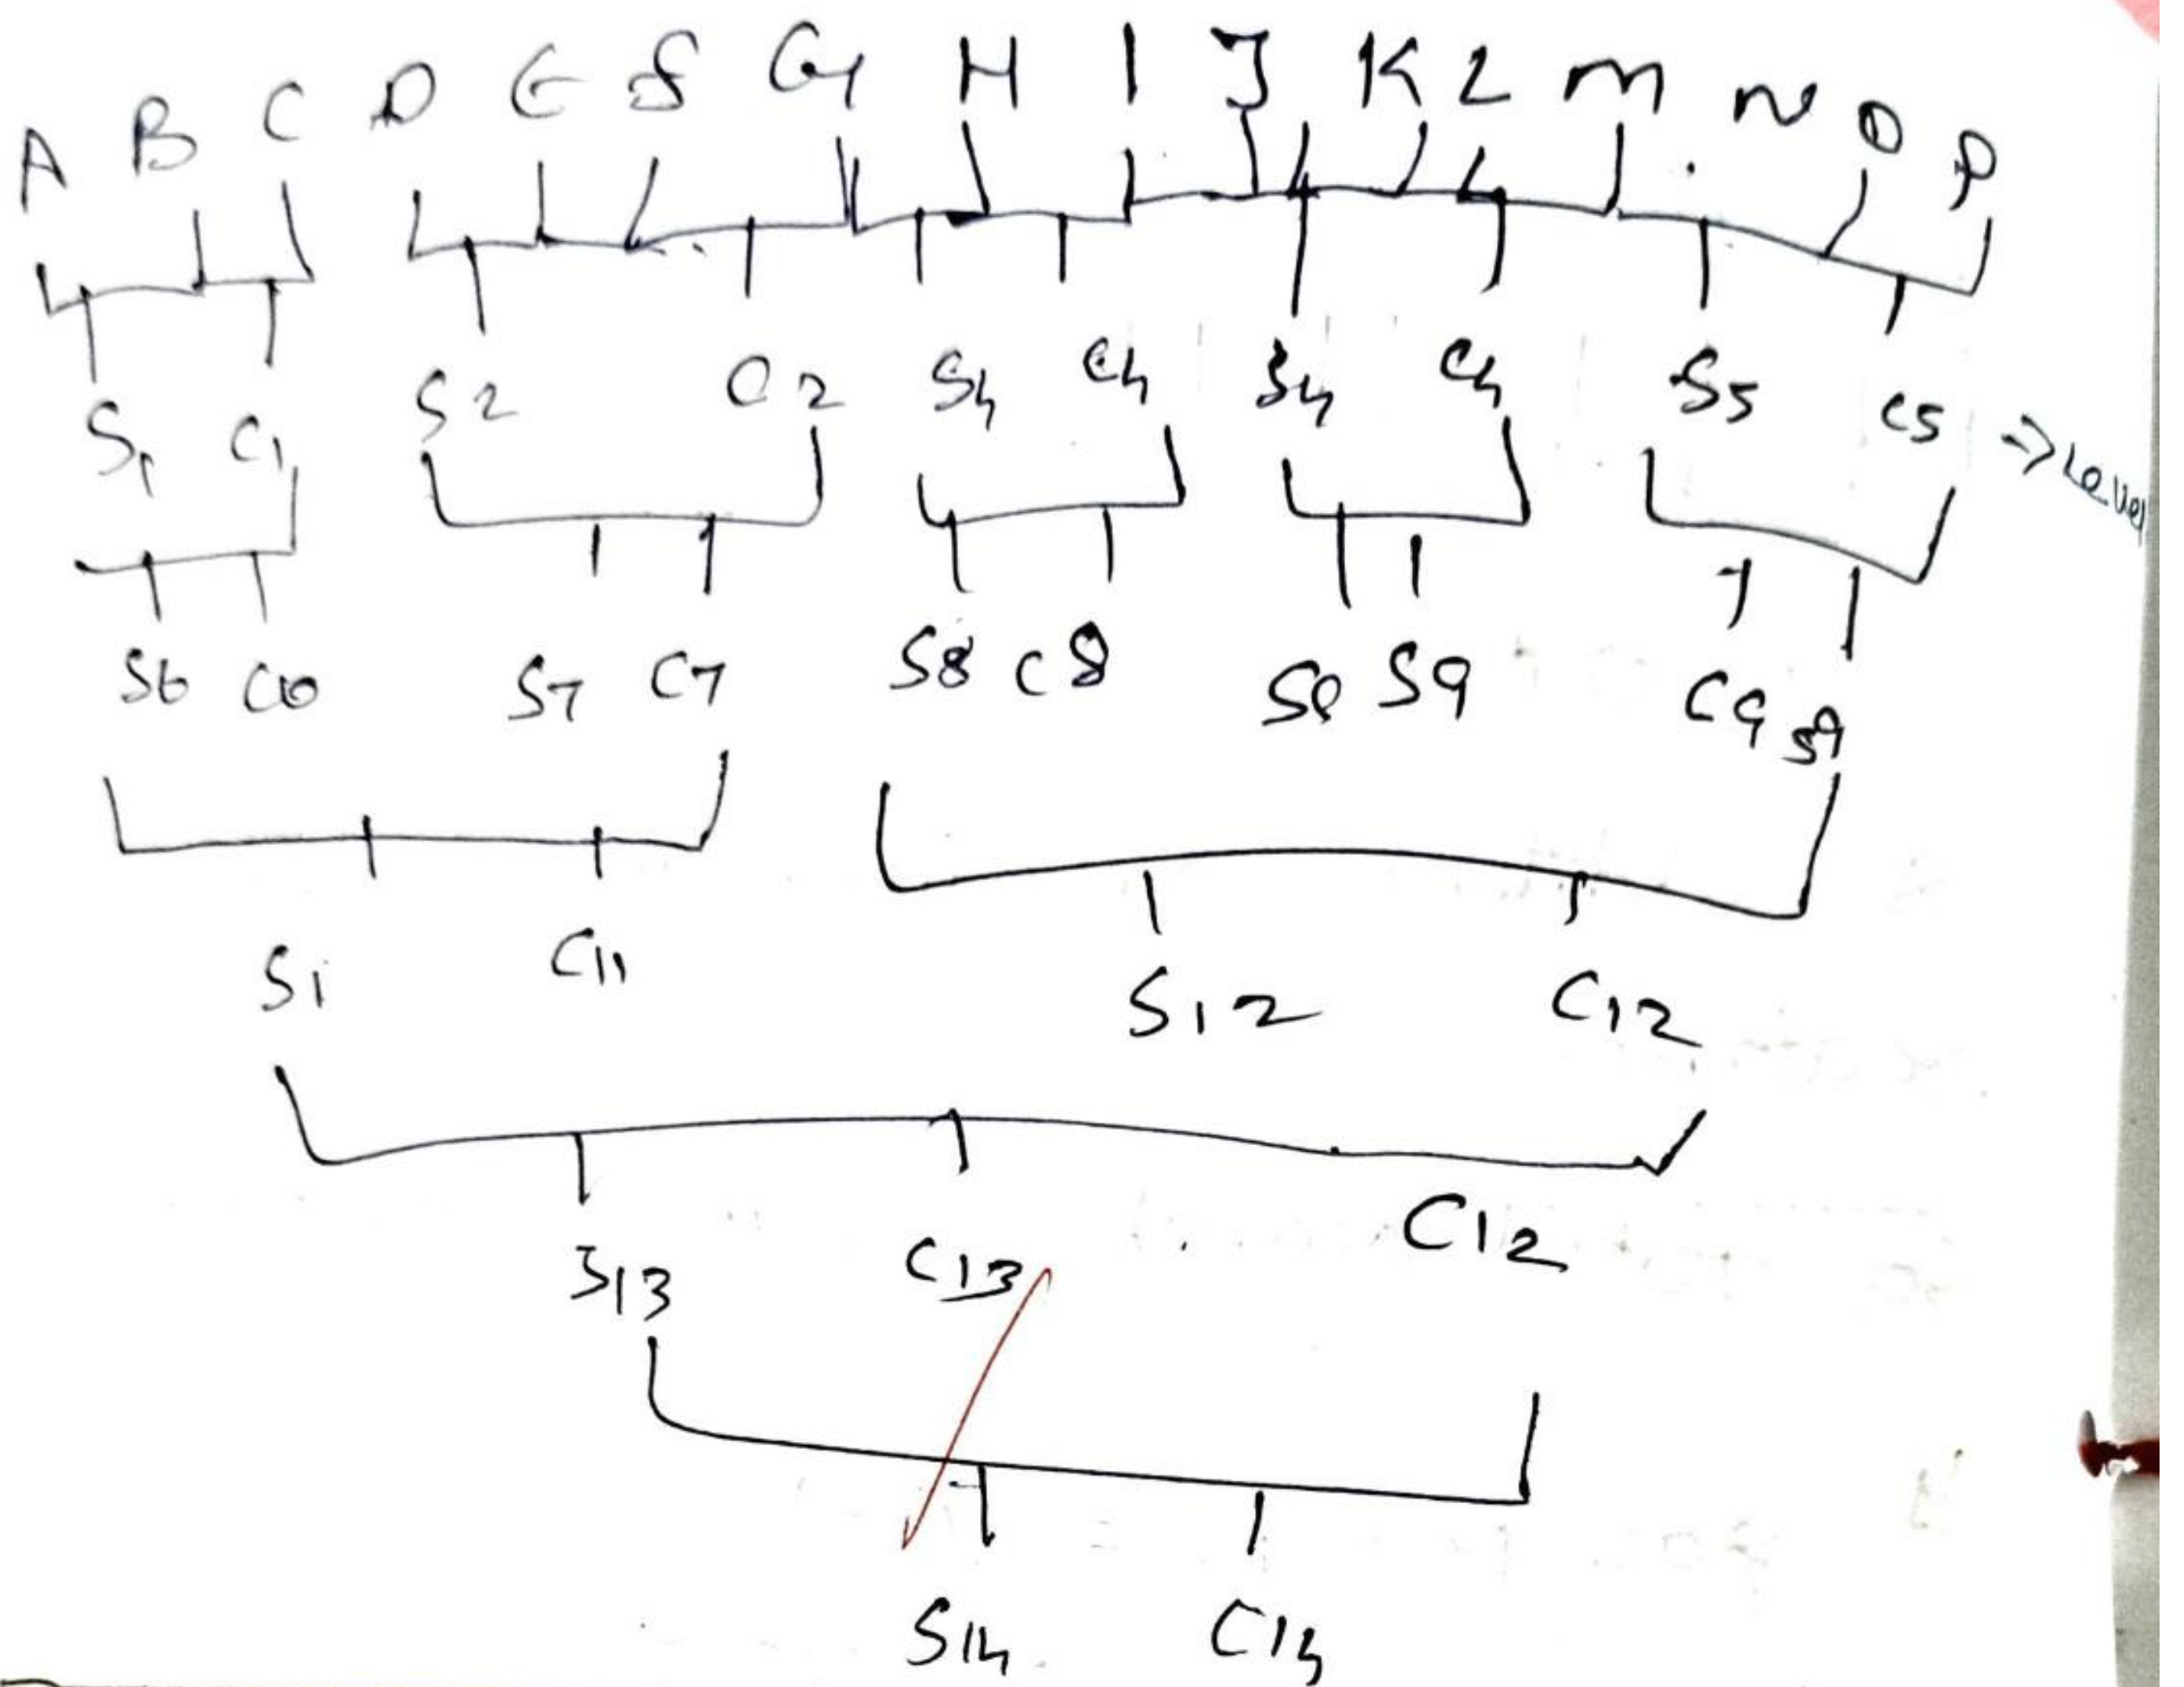 A B C D E f G H I J K L M N O P
S1 C1 S2 C2 S4 C4 S4 C4 S5 C5 => Level
S6 C6 S7 C7 S8 C8 S8 S9 C9 S9
S1 C11 S12 C12
S13 C13 C12
S14 C14